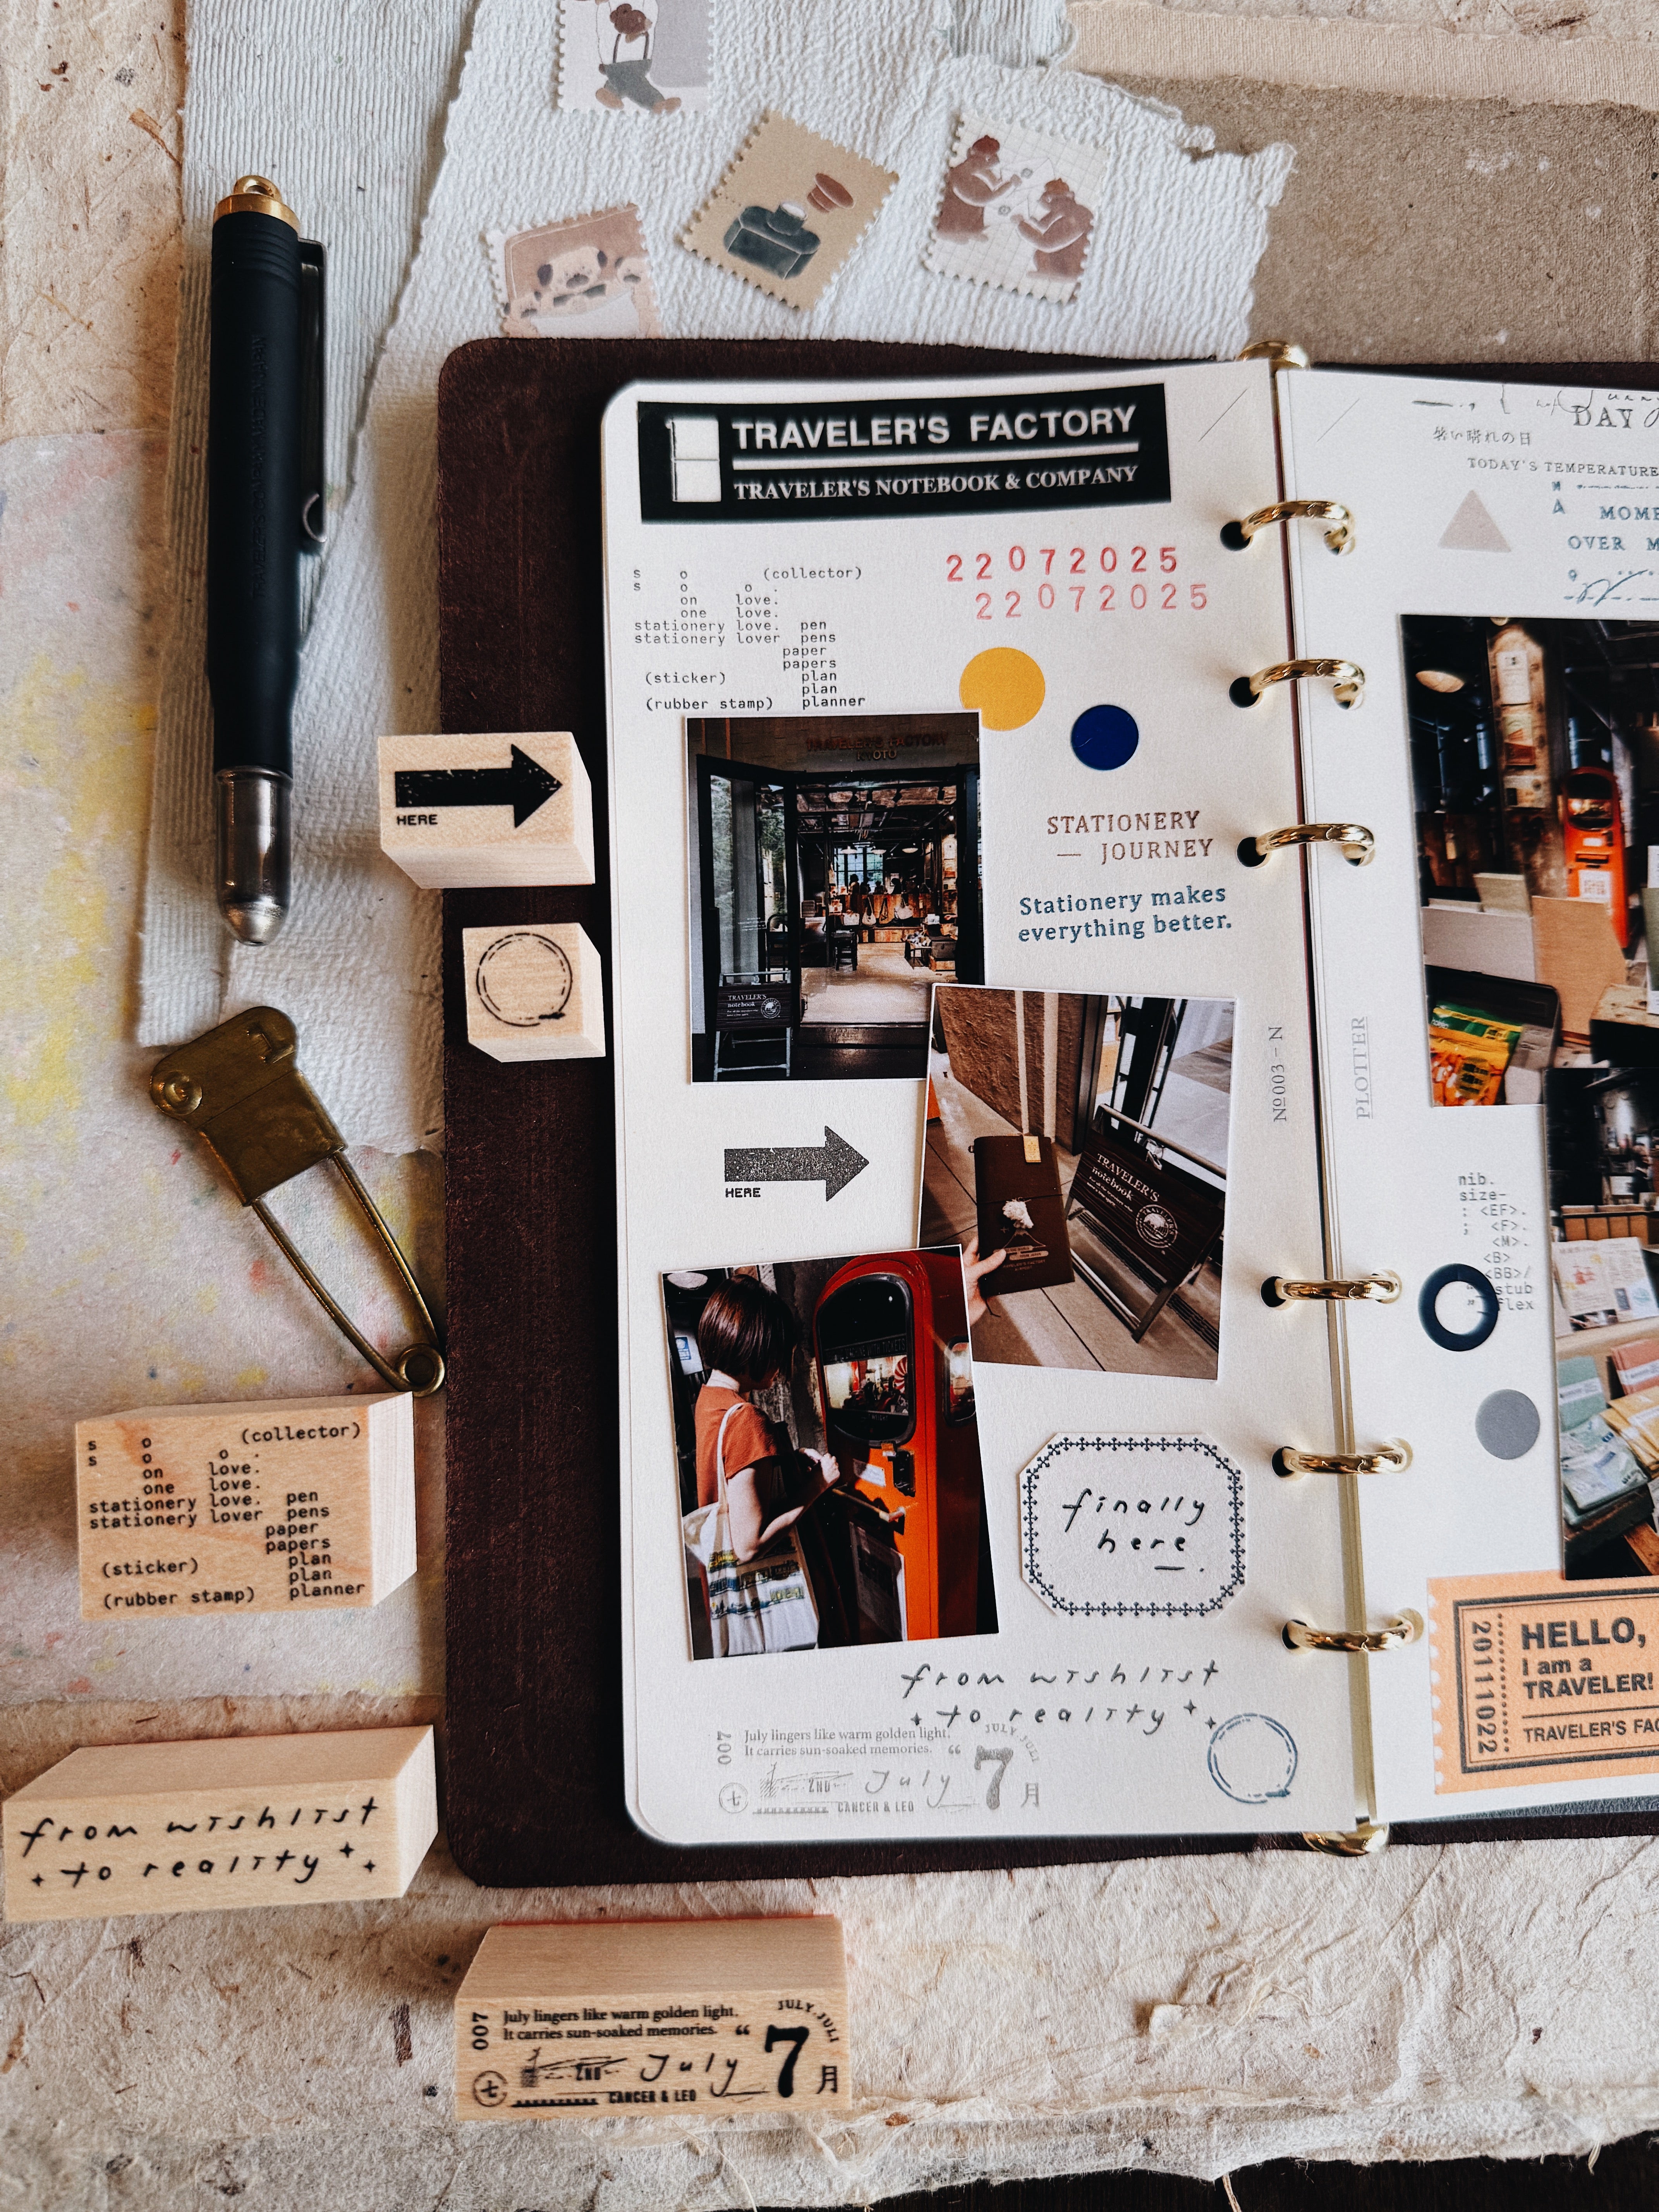 TRAVELER'S FACTORY
TRAVELER'S NOTEBOOK & COMPANY
22072025
22072025
s o (collector)
s o o .
on love.
one love.
stationery love. pen
stationery lover pens
paper
papers
(sticker) plan
plan
(rubber stamp) planner
TRAVELER'S FACTORY
KYOTO
TRAVELER'S
notebook
STATIONERY
— JOURNEY
Stationery makes
everything better.
TRAVELER'S
notebook
HERE
finally
here.
from wishlist
to reality
007
July lingers like warm golden light.
It carries sun-soaked memories. “
JULY. JULI
七
2ND
July
7
月
CANCER & LEO
№003-N
PLOTTER
DAY
暑い晴れの日
TODAY'S TEMPERATURE
MOME
OVER M
nib.
size-
: <EF>.
; <F>.
<M>.
<B>
<BB>/
stub
flex
20111022
HELLO,
I am a
TRAVELER!
TRAVELER'S FAC
HERE
1
s o (collector)
s o o .
on love.
one love.
stationery love. pen
stationery lover pens
paper
papers
(sticker) plan
plan
(rubber stamp) planner
from wishlist
to reality
007
July lingers like warm golden light.
It carries sun-soaked memories. “
JULY. JULI
七
2ND
July
7
月
CANCER & LEO